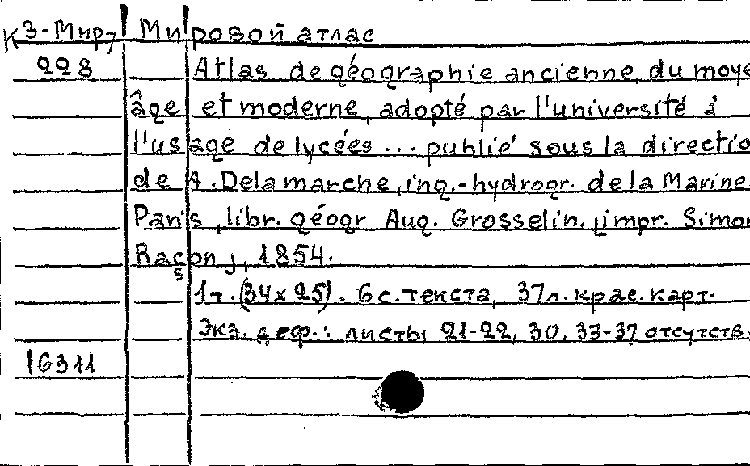 К3-Мир/7 Мировой атлас
228 Atlas de géographie ancienne, du moye
âge et moderne, adopté par l'université à
l'usage de lycées ... publié sous la directio
de A. Delamarche, ing.-hydrogr. de la Marine.
Paris, libr. géogr Aug. Grosselin, impr. Simon
Raçon, 1854.
1т. (34x25). 6 с. текста, 37 л. крас. карт.
Экз. деф.: листы 21-22, 30, 33-37 отсутств.
16311